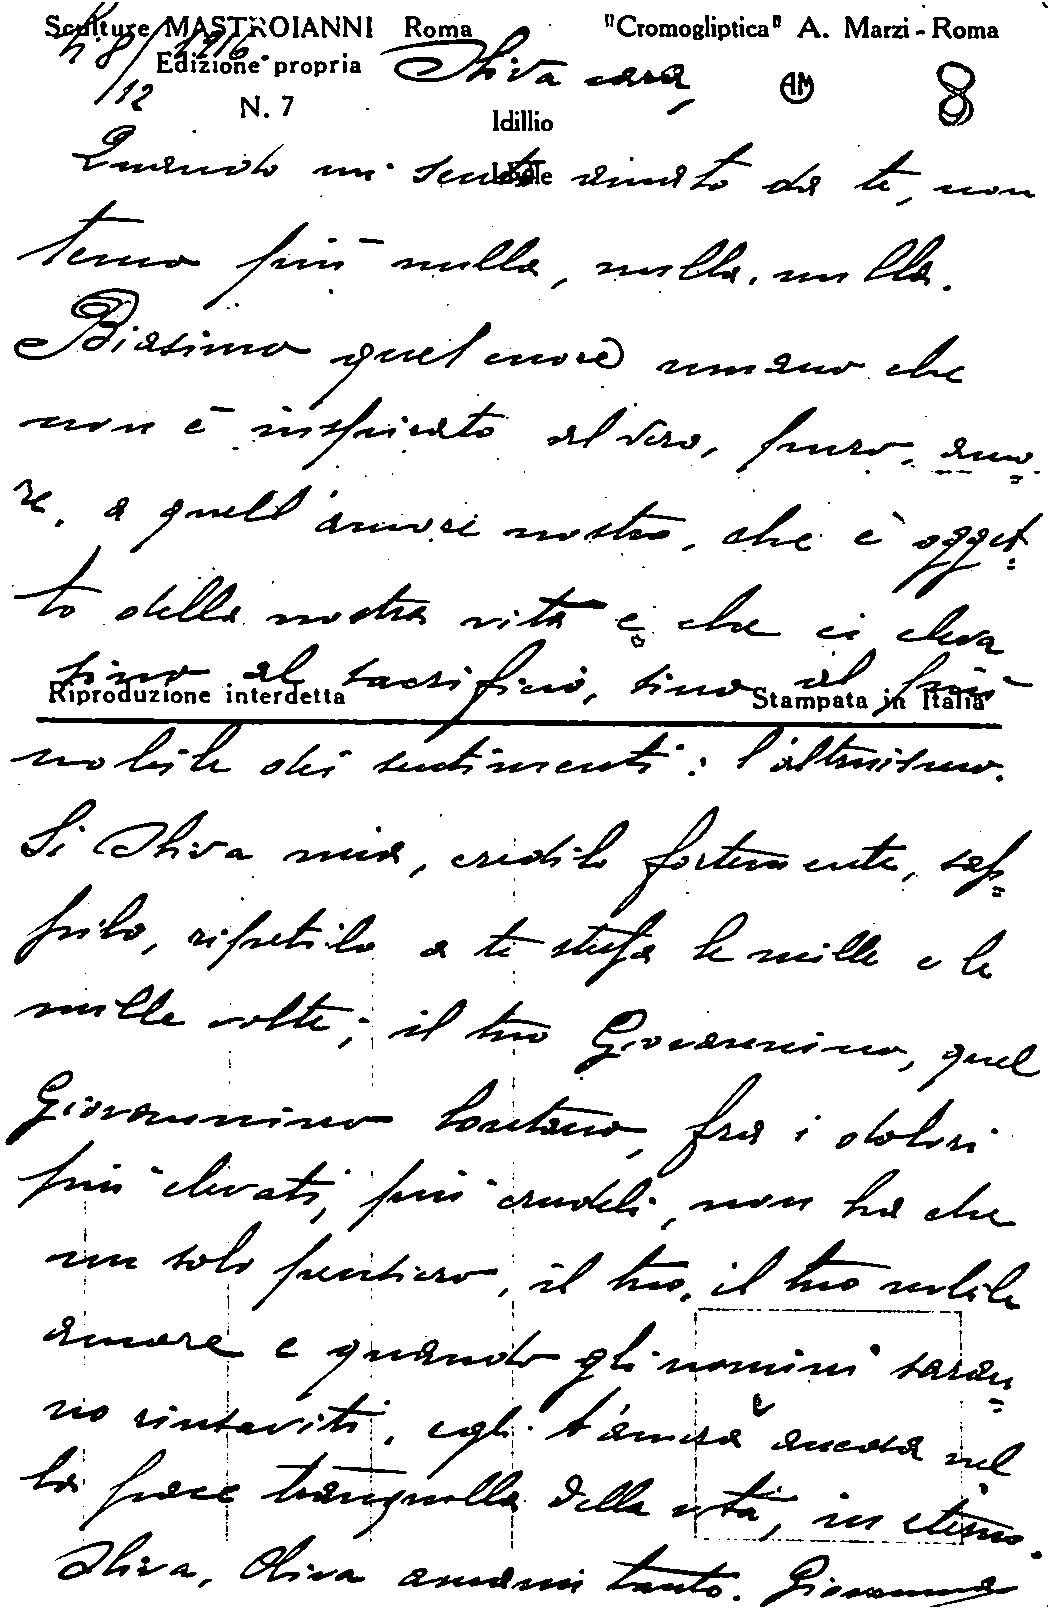 Sculture MASTROIANNI Roma "Cromogliptica" A. Marzi - Roma
8/12 1916 Edizione propria Oliva cara, AM 8
N. 7 Idillio
Quando mi sento amato da te, non
Idylle
temo più nulla, nulla, nulla.
Biasimo quel cuore umano che
non è inspirato al vero, puro, amo=
re, a quell'amore nostro, che è ogget=
to della nostra vita e che ci eleva
sino al sacrificio, sino al più
Riproduzione interdetta Stampata in Italia
nobile dei sentimenti: l'altruismo.
Si Oliva mia, credilo fortemente, sap=
pilo, ripetilo a te stessa le mille e le
mille volte; il tuo Giovannino, quel
Giovannino lontano, fra i dolori
più elevati, più crudeli, non ha che
un solo pensiero, il tuo, il tuo nobile
amore e quando gli uomini saran=
no rinsaviti, egli t'amerà ancora nel
la pace tranquilla della vita, in eterno.
Oliva, Oliva amami tanto. Giovanni